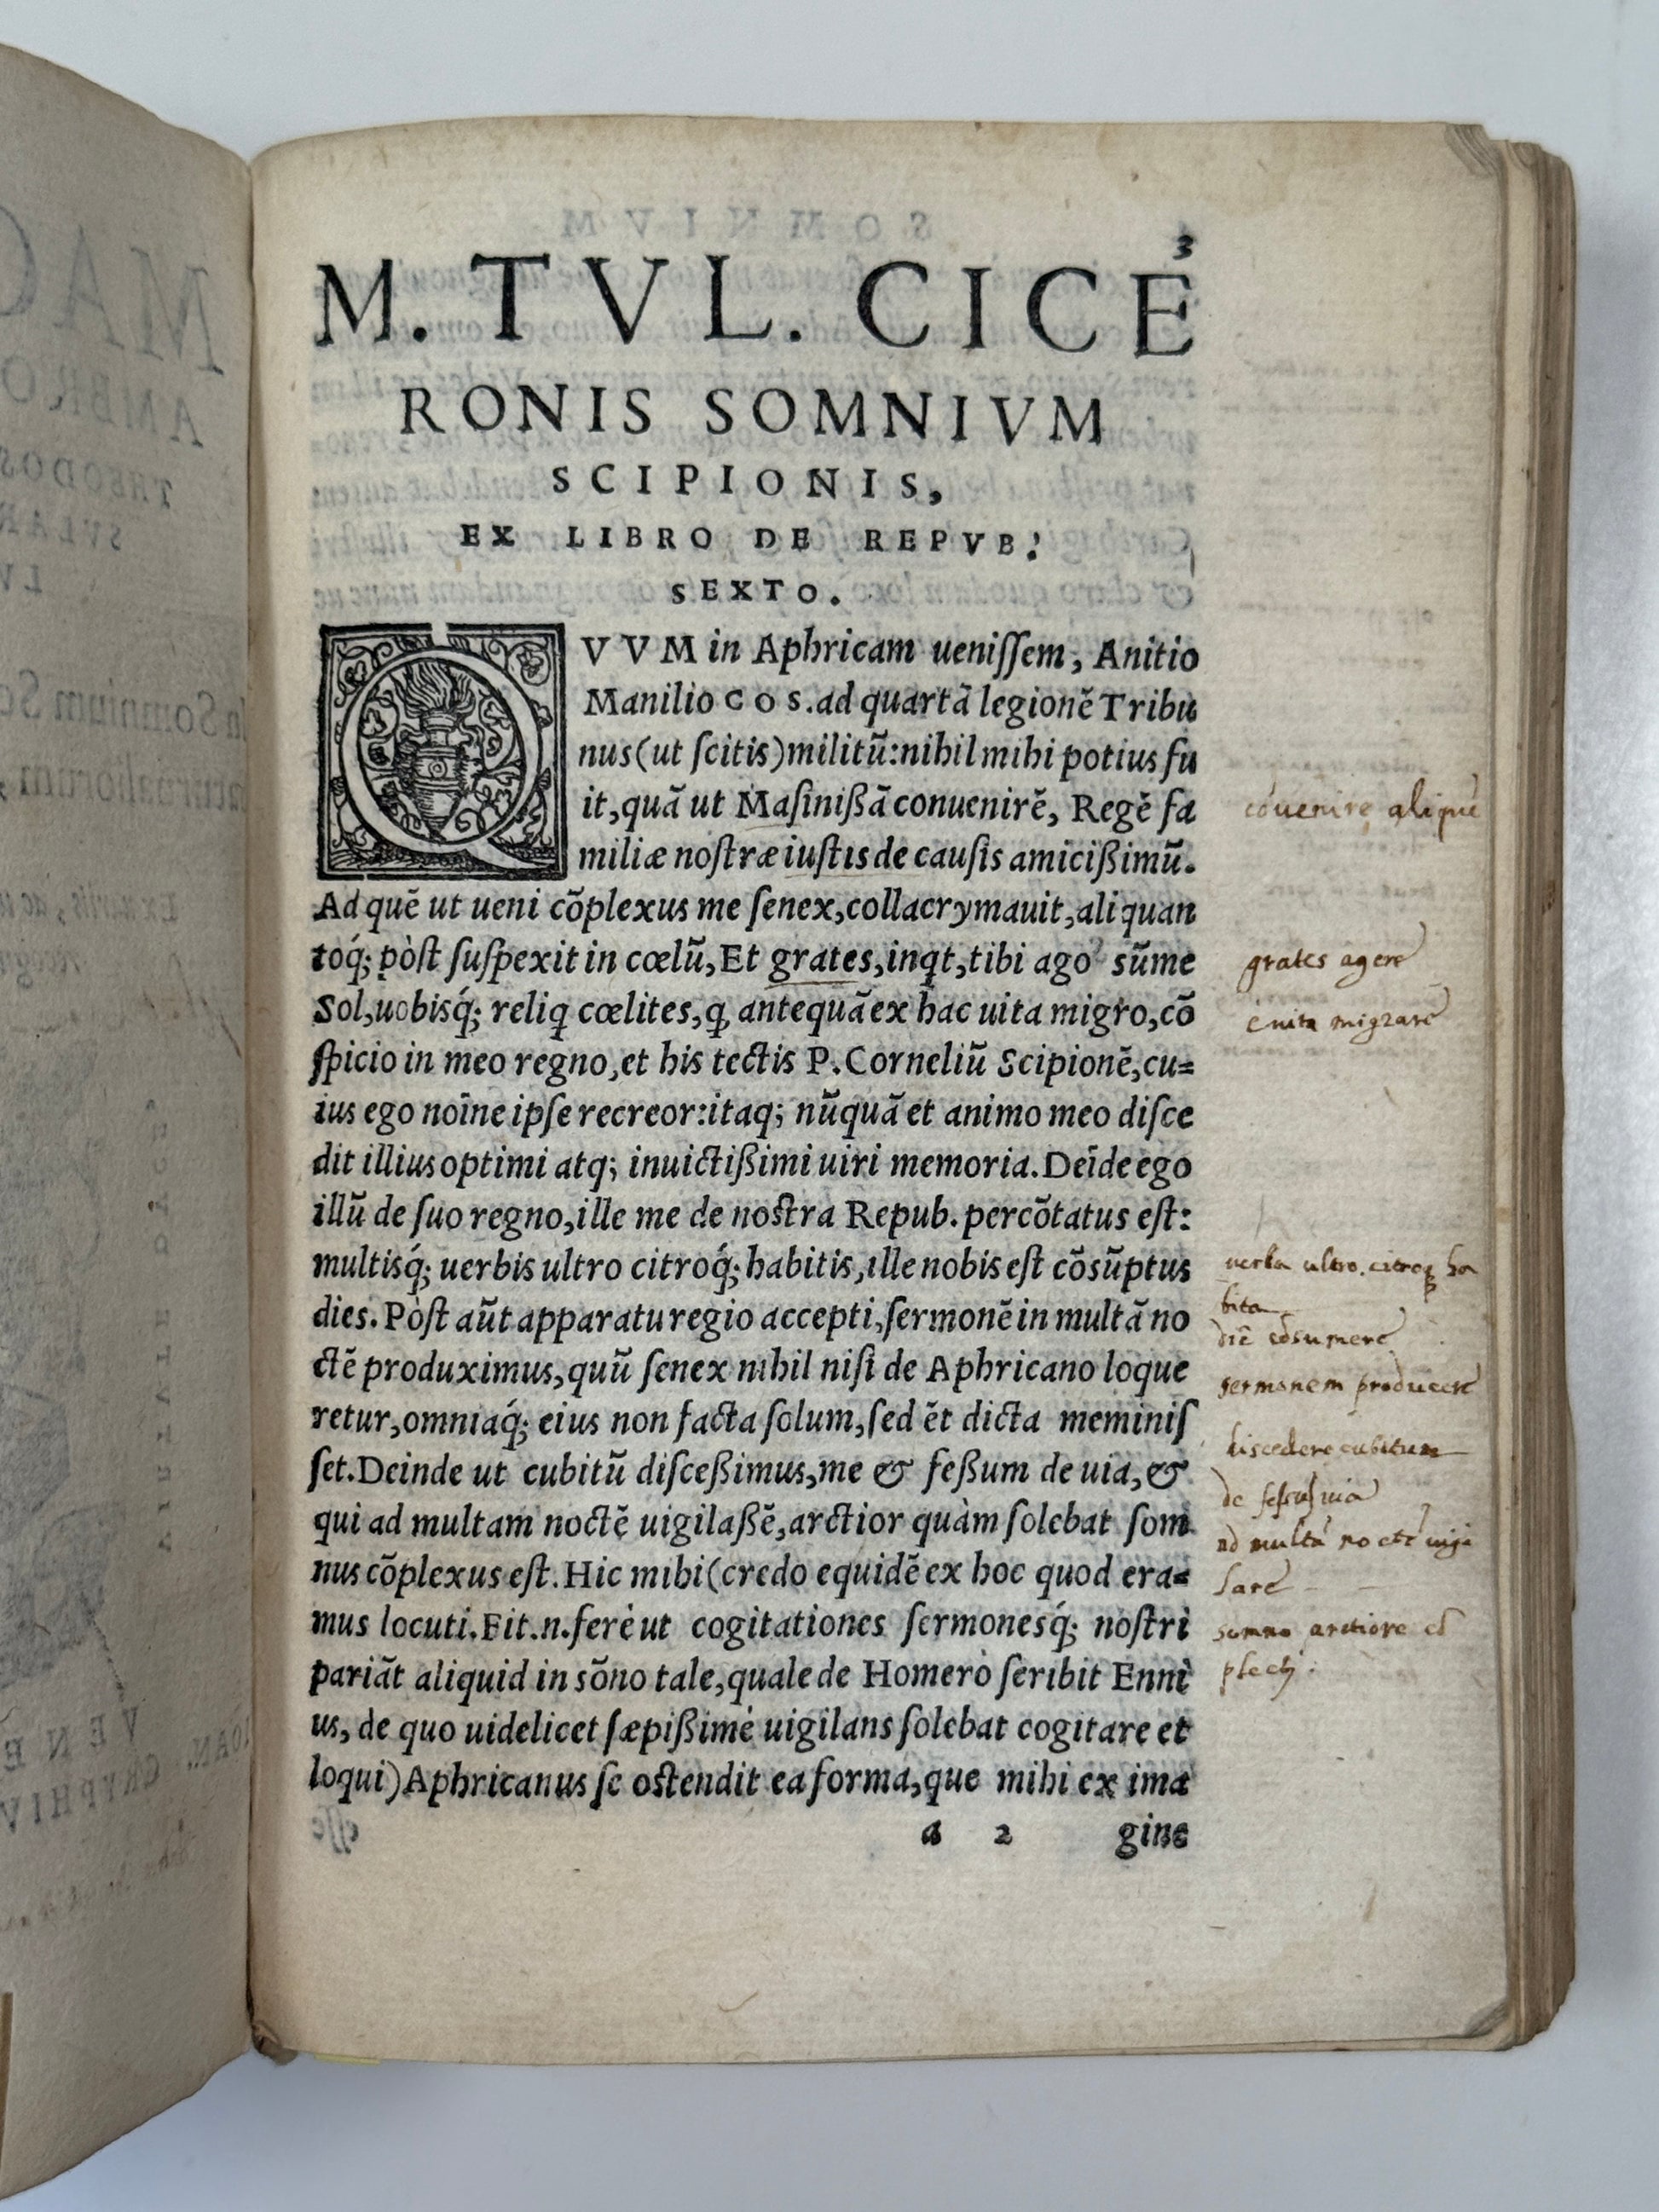 3
M. TVL. CICE
RONIS SOMNIVM
SCIPIONIS,
EX LIBRO DE REPVB.
SEXTO.
QVVM in Aphricam ueniſſem, Anitio
Manilio COS. ad quartā legionē Tribu
nus (ut ſcitis) militū: nihil mihi potius fu
it, quā ut Maſinißā conuenirē, Regē fa
miliæ noſtræ iuſtis de cauſis amicißimū.
Ad quē ut ueni cōplexus me ſenex, collacrymauit, aliquan
toq́; pòſt ſuſpexit in cœlū, Et grates, inqt, tibi ago ſūme
Sol, uobisq́; reliq cœlites, q, antequā ex hac uita migro, cō
ſpicio in meo regno, et his tectis P. Corneliū Scipionē, cu=
ius ego noīne ipſe recreor: itaq; nūquā et animo meo diſce
dit illius optimi atq; inuictißimi uiri memoria. Deīde ego
illū de ſuo regno, ille me de noſtra Repub. percōtatus eſt:
multisq́; uerbis ultro citroq́; habitis, ille nobis eſt cōsūptus
dies. Pòſt aūt apparatu regio accepti, ſermonē in multā no
ctē produximus, quū ſenex nihil niſi de Aphricano loque
retur, omniaq́; eius non facta ſolum, ſed ēt dicta meminiſ
ſet. Deinde ut cubitū diſceßimus, me & feßum de uia, &
qui ad multam noctē uigilaßē, arctior quàm ſolebat ſom
nus cōplexus eſt. Hic mihi (credo equidē ex hoc quod era=
mus locuti. Fit .n. ferè ut cogitationes ſermonesq́; noſtri
pariāt aliquid in sōno tale, quale de Homero ſcribit Enni
us, de quo uidelicet ſæpißimè uigilans ſolebat cogitare et
loqui) Aphricanus ſe oſtendit ea forma, que mihi ex ima
a 2 gine
cōuenire aliquē
grates agere
e uita migrare
uerba ultro citroq; ha
bita
diē cōsumere
sermonem producere
discedere cubitum
de uia
ad multā noctē uigi
lare
somno arctiore cō
plecti